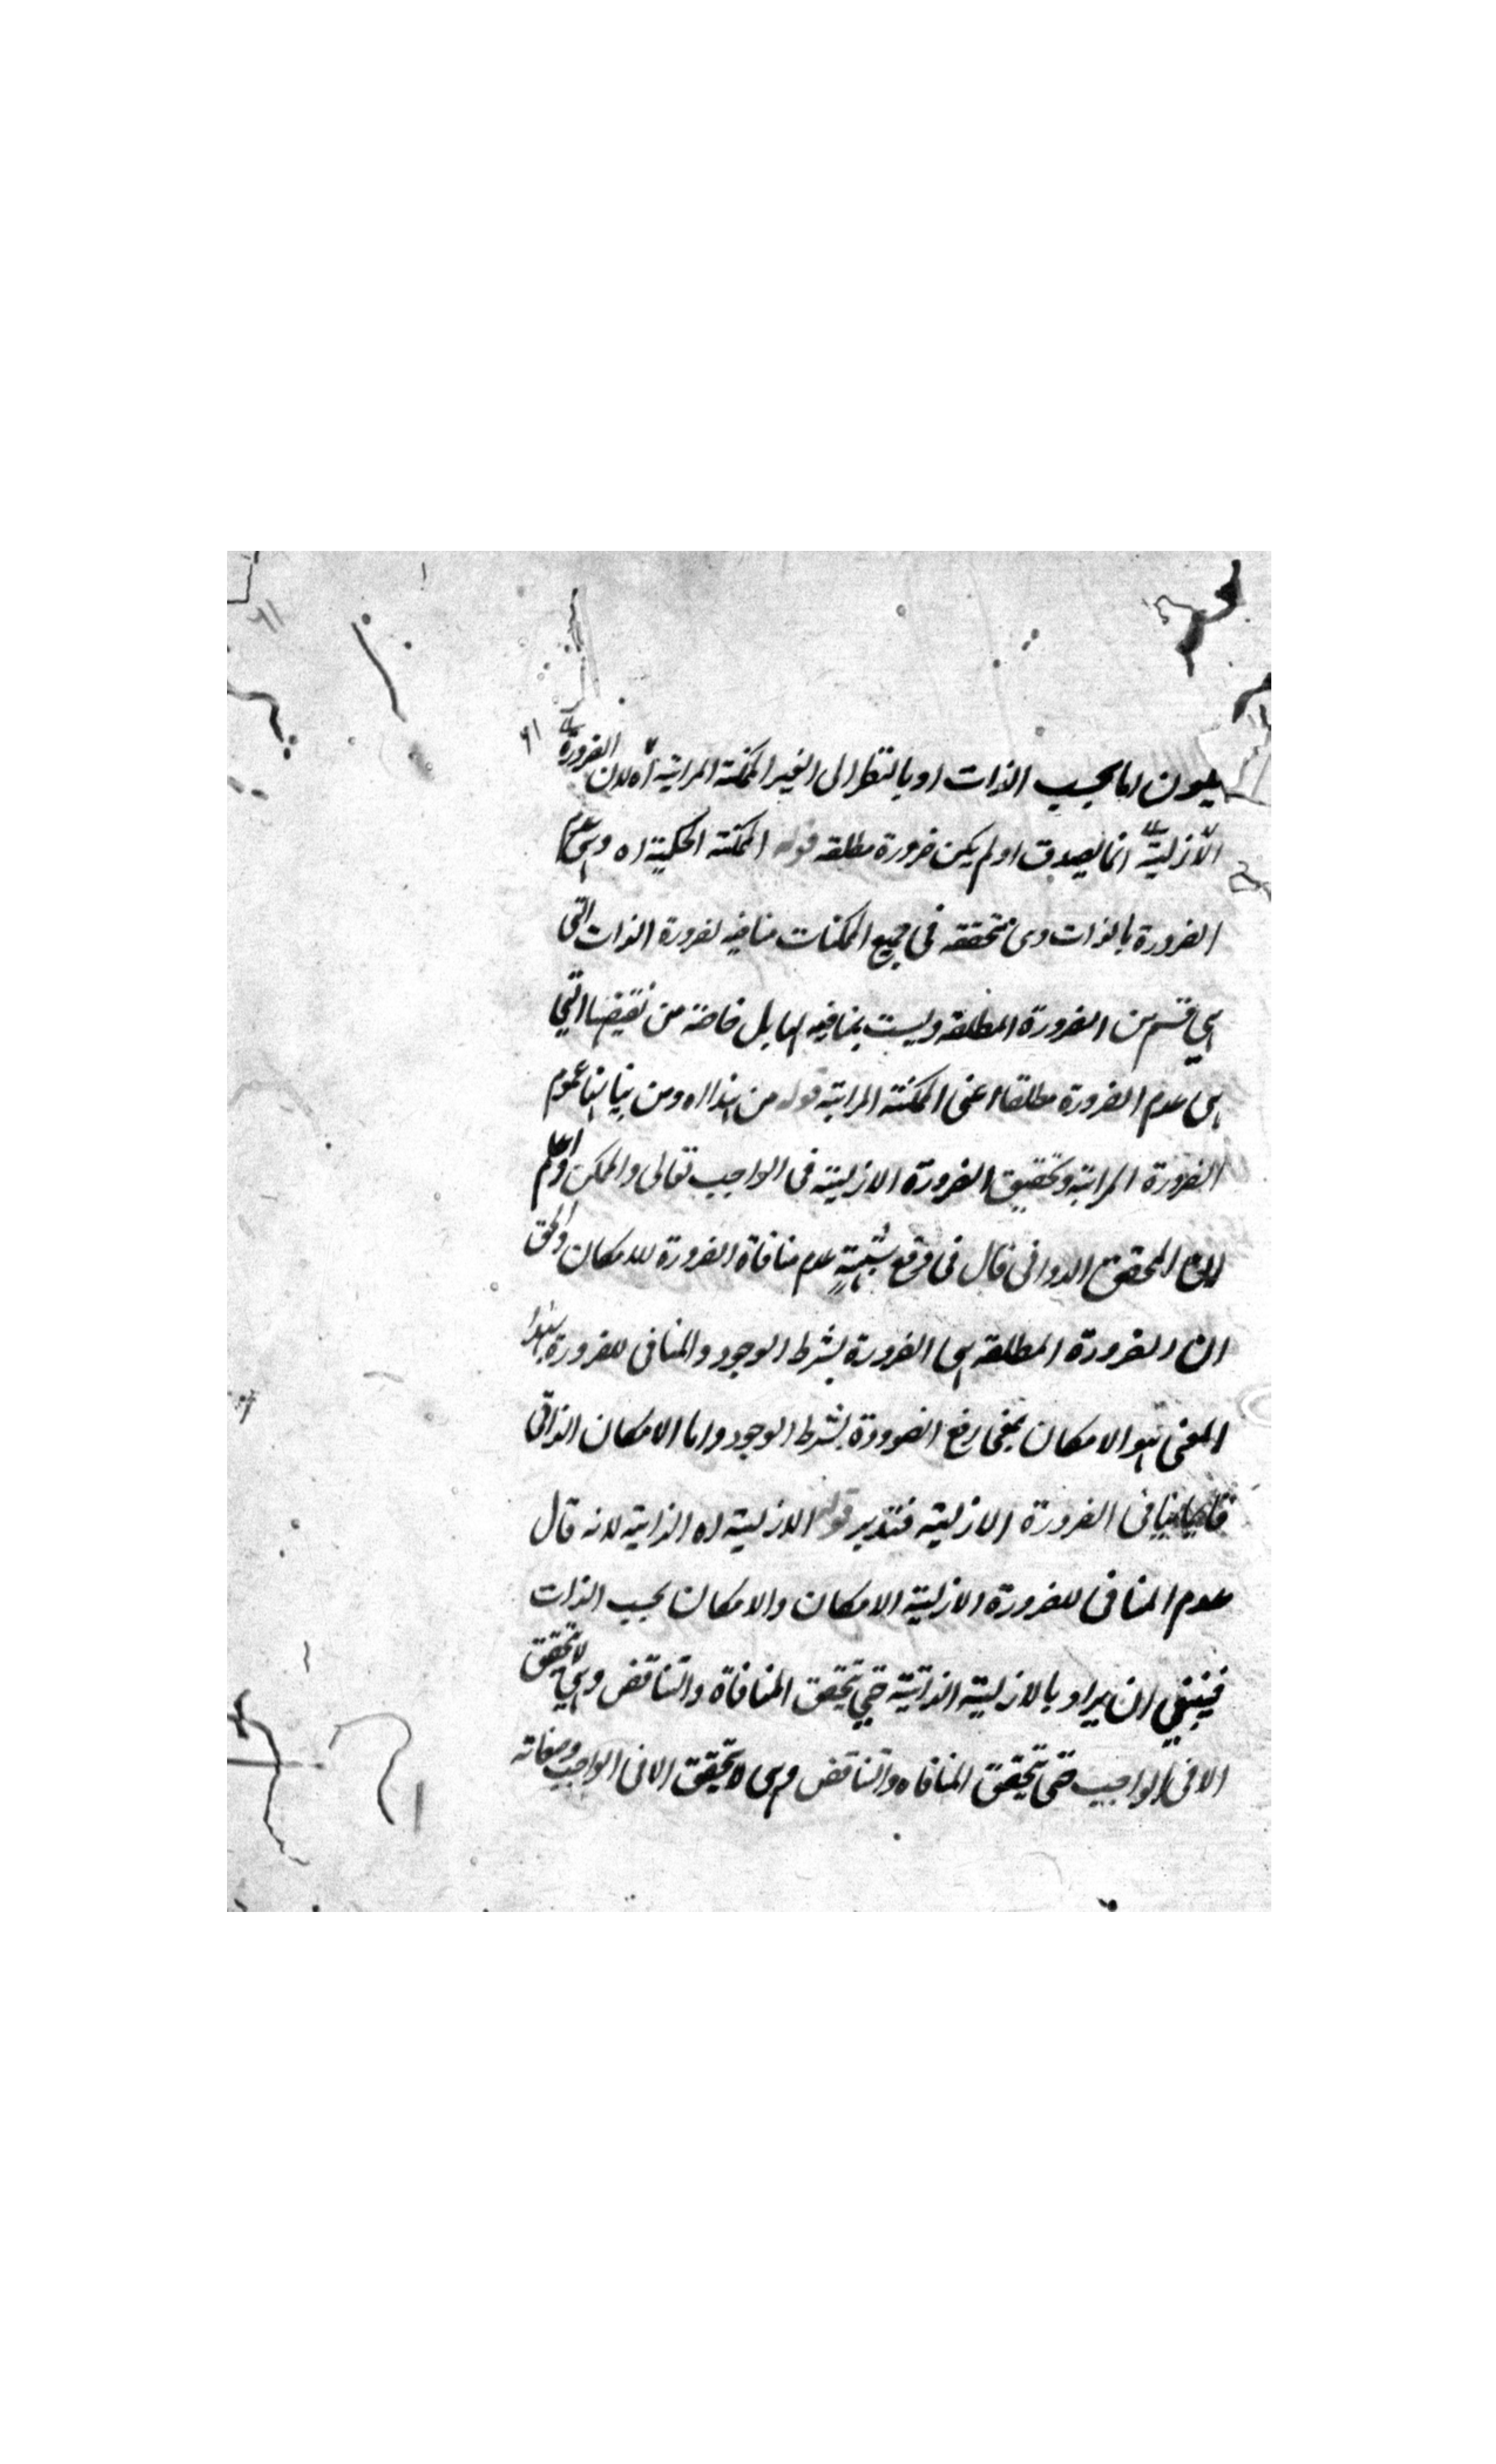 يكون اما بحسب الذات او بالنظر الى الغير الممكنة المرآتية اه لان الضرورة
الازلية انما يصدق او لم يكن ضرورة مطلقه قوله الممكنة الحكمية اه وهي عدم
الضرورة بالذات وهى متحققه في جميع الممكنات منافيه لضرورة الذات التي
هي قسم من الضرورة المطلقه وليست بمنافيه لها بل خاصة من نقيضها التي
هى عدم الضرورة مطلقا اعنى الممكنة المراتية قوله من هذا اه ومن بيانا عموم
الضرورة المراتية وتحقيق الضرورة الازلية فى الواجب تعالى والممكن واعلم
ان المحقق الدوانى قال فى دفع شبهة عدم منافاة الضرورة للامكان والحق
ان الضرورة المطلقه هى الضرورة بشرط الوجود والمنافى للضرورة بهذا
المعنى هو الامكان بمعنى رفع الضرورة بشرط الوجود واما الامكان الذاتى
فانما ينافى الضرورة الازلية فتدبر قوله الازلية اه الذاتية لانه قال
عدم المنافى للضرورة الازلية الامكان والامكان بحسب الذات
فينبغي ان يراد بالازلية الذاتية حتي تحقق المنافاة والتناقض وهي لا تحقق
الا فى الواجب حتى يتحقق المنافاه والتناقض وهى لا يتحقق الا فى الواجب وصفاته
٩١